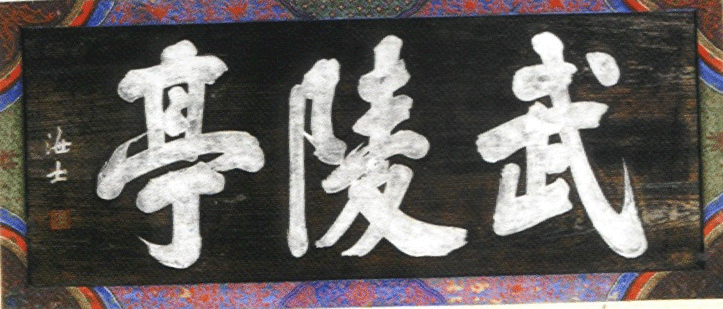 武陵亭
海士